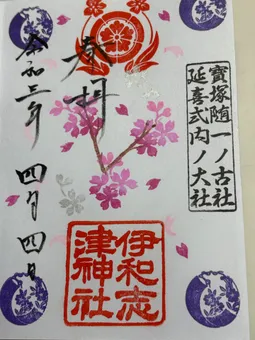 寶塚随一ノ古社
延喜式内ノ大社
奉拝
伊和志
津神社
令和三年 四月 四日